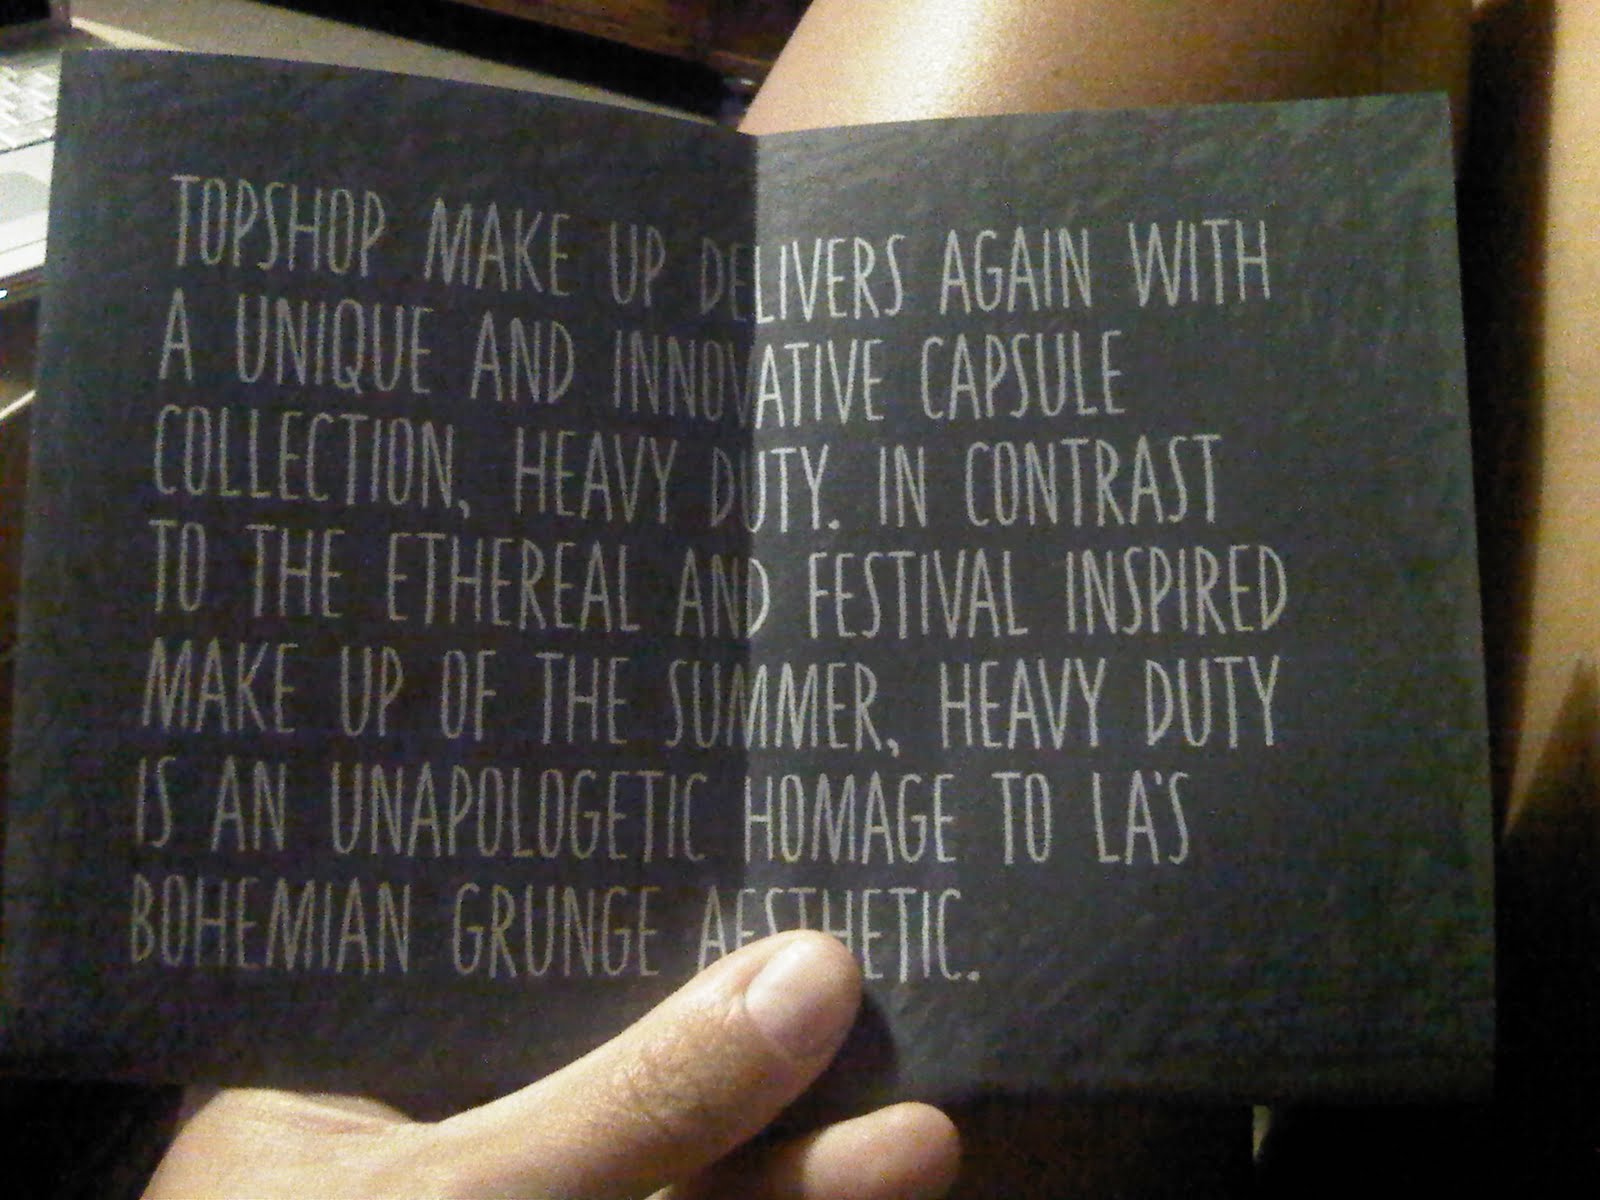 TOPSHOP MAKE UP DELIVERS AGAIN WITH
A UNIQUE AND INNOVATIVE CAPSULE
COLLECTION, HEAVY DUTY. IN CONTRAST
TO THE ETHEREAL AND FESTIVAL INSPIRED
MAKE UP OF THE SUMMER, HEAVY DUTY
IS AN UNAPOLOGETIC HOMAGE TO LA'S
BOHEMIAN GRUNGE AESTHETIC.